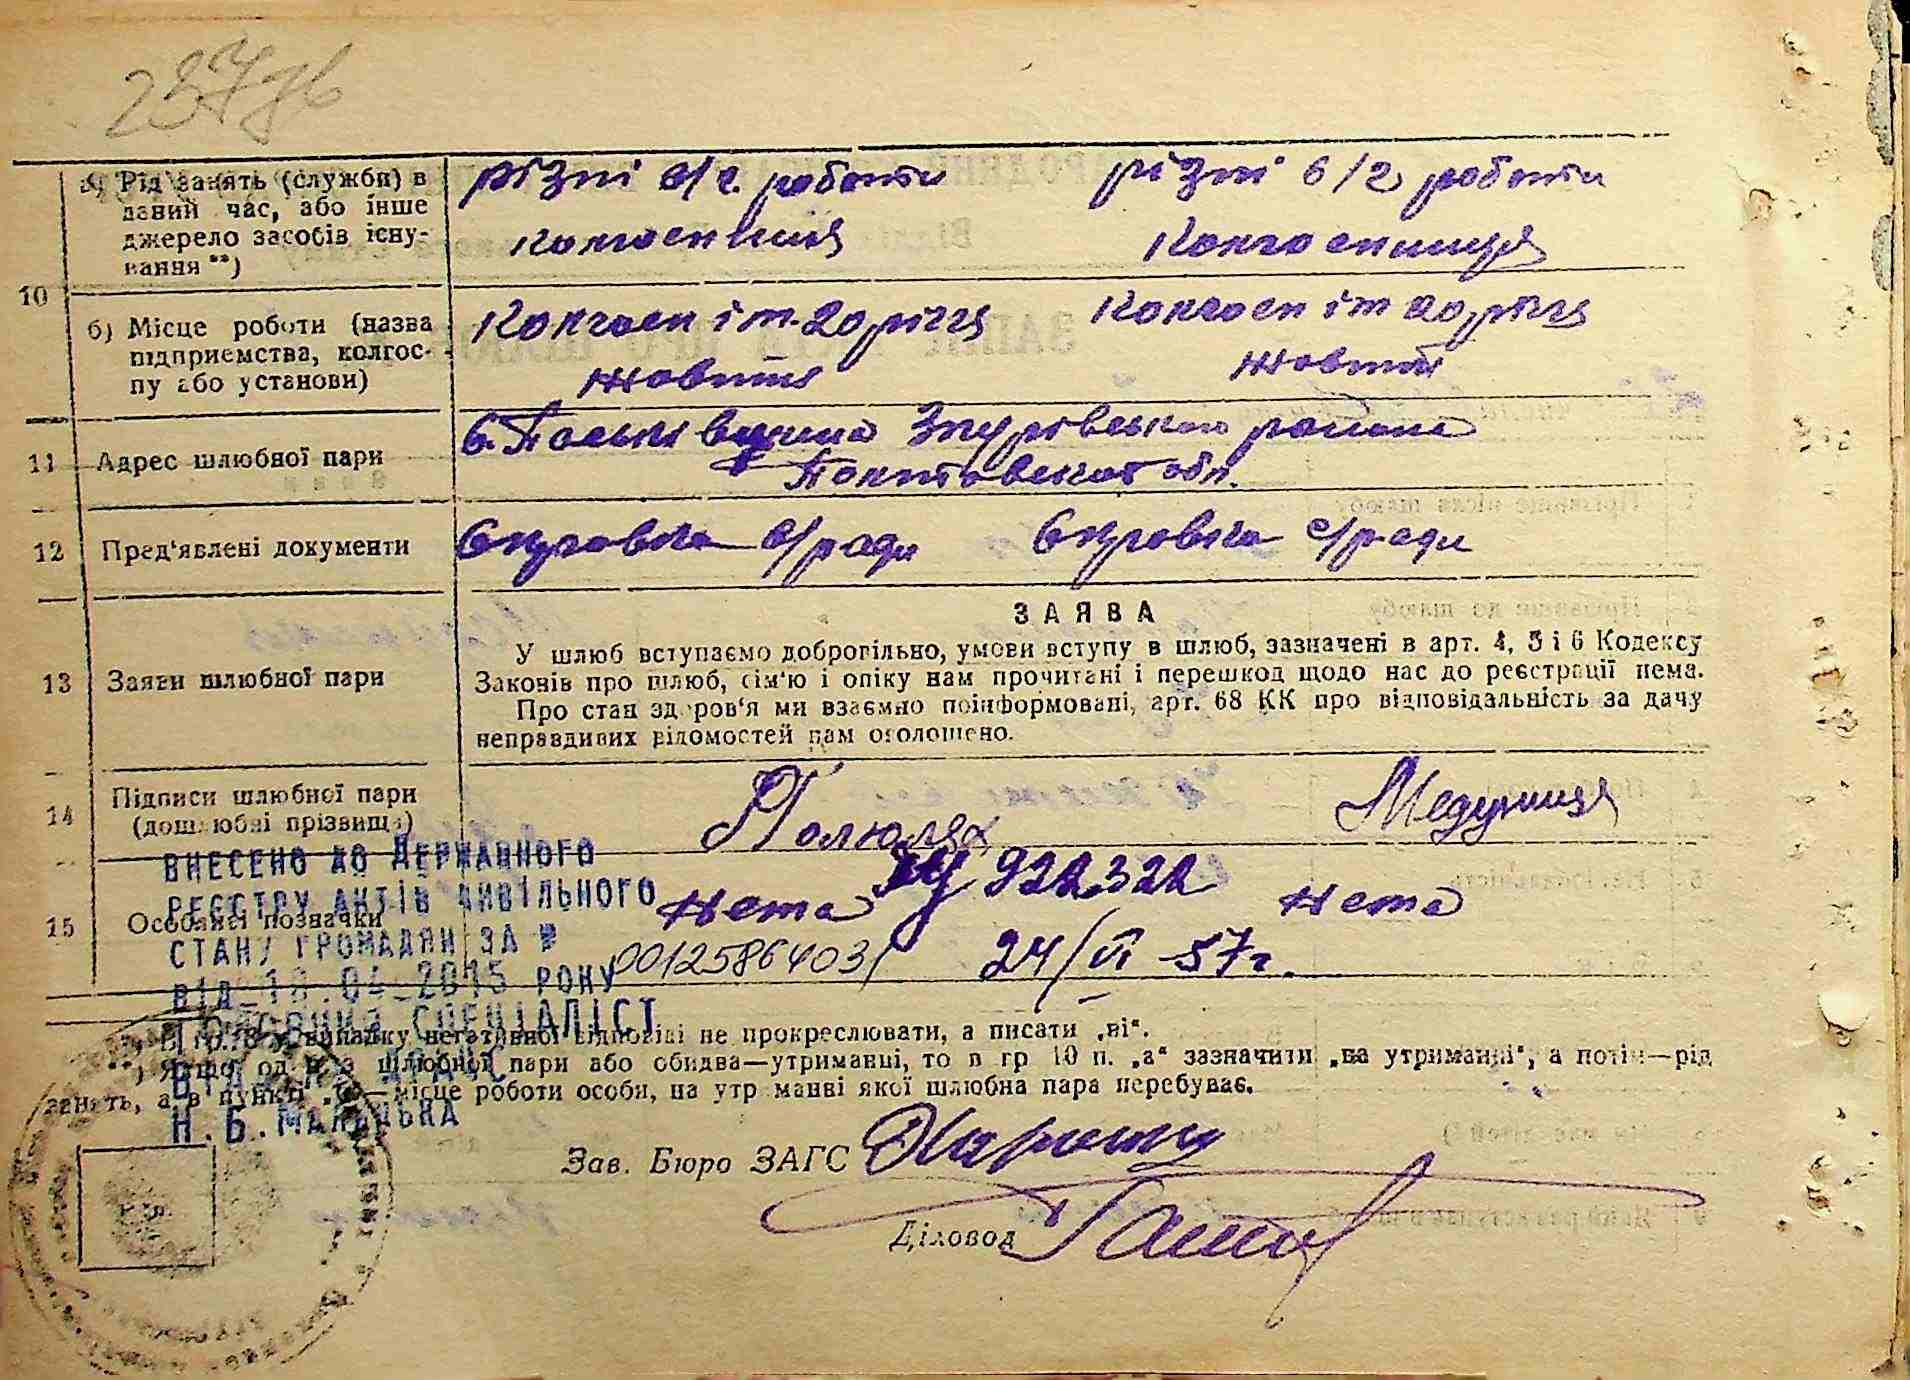 237
а) Рід занять (служби) в
даний час, або інше
джерело засобів існу-
вання **)
різні с/г. роботи
різні с/г роботи
колгоспниця
10
б) Місце роботи (назва
підприємства, колгос-
пу або установи)
Колгосп ім. 20 річчя
Жовтня
Колгосп ім 20 річчя
Жовтня
11 Адрес шлюбної пари
с. Пасківщина Згурівського района
Полтавской обл.
12 Пред'явлені документи
с/ради
с/ради
13 Заяви шлюбної пари
ЗАЯВА
У шлюб вступаємо добровільно, умови вступу в шлюб, зазначені в арт. 4, 5 і 6 Кодексу
Законів про шлюб, сім'ю і опіку нам прочитані і перешкод щодо нас до реєстрації нема.
Про стан здоров'я ми взаємно поінформовані, арт. 68 КК про відповідальність за дачу
неправдивих відомостей нам оголошено.
14 Підписи шлюбної пари
(дошлюбні прізвища)
Полюлях
Медяниця
15 Особливі позначки
нета
922322
нета
24/VI-57 г.
ВНЕСЕНО ДО ДЕРЖАВНОГО
РЕЄСТРУ АКТІВ ЦИВІЛЬНОГО
СТАНУ ГРОМАДЯН ЗА №
00125864031
ВІД 18.04.2015 РОКУ
ГОЛОВНИЙ СПЕЦІАЛІСТ
ВІДДІЛУ ДРАЦС
*) В гр. 8 у випадку негативної відповіді не прокреслювати, а писати „ні“.
**) Якщо один з шлюбної пари або обидва—утриманці, то в гр 10 п. „а“ зазначити „на утриманні“, а потім—рід
занять, а в пункті „б“—місце роботи особи, на утриманні якої шлюбна пара перебуває.
Зав. Бюро ЗАГС
Діловод